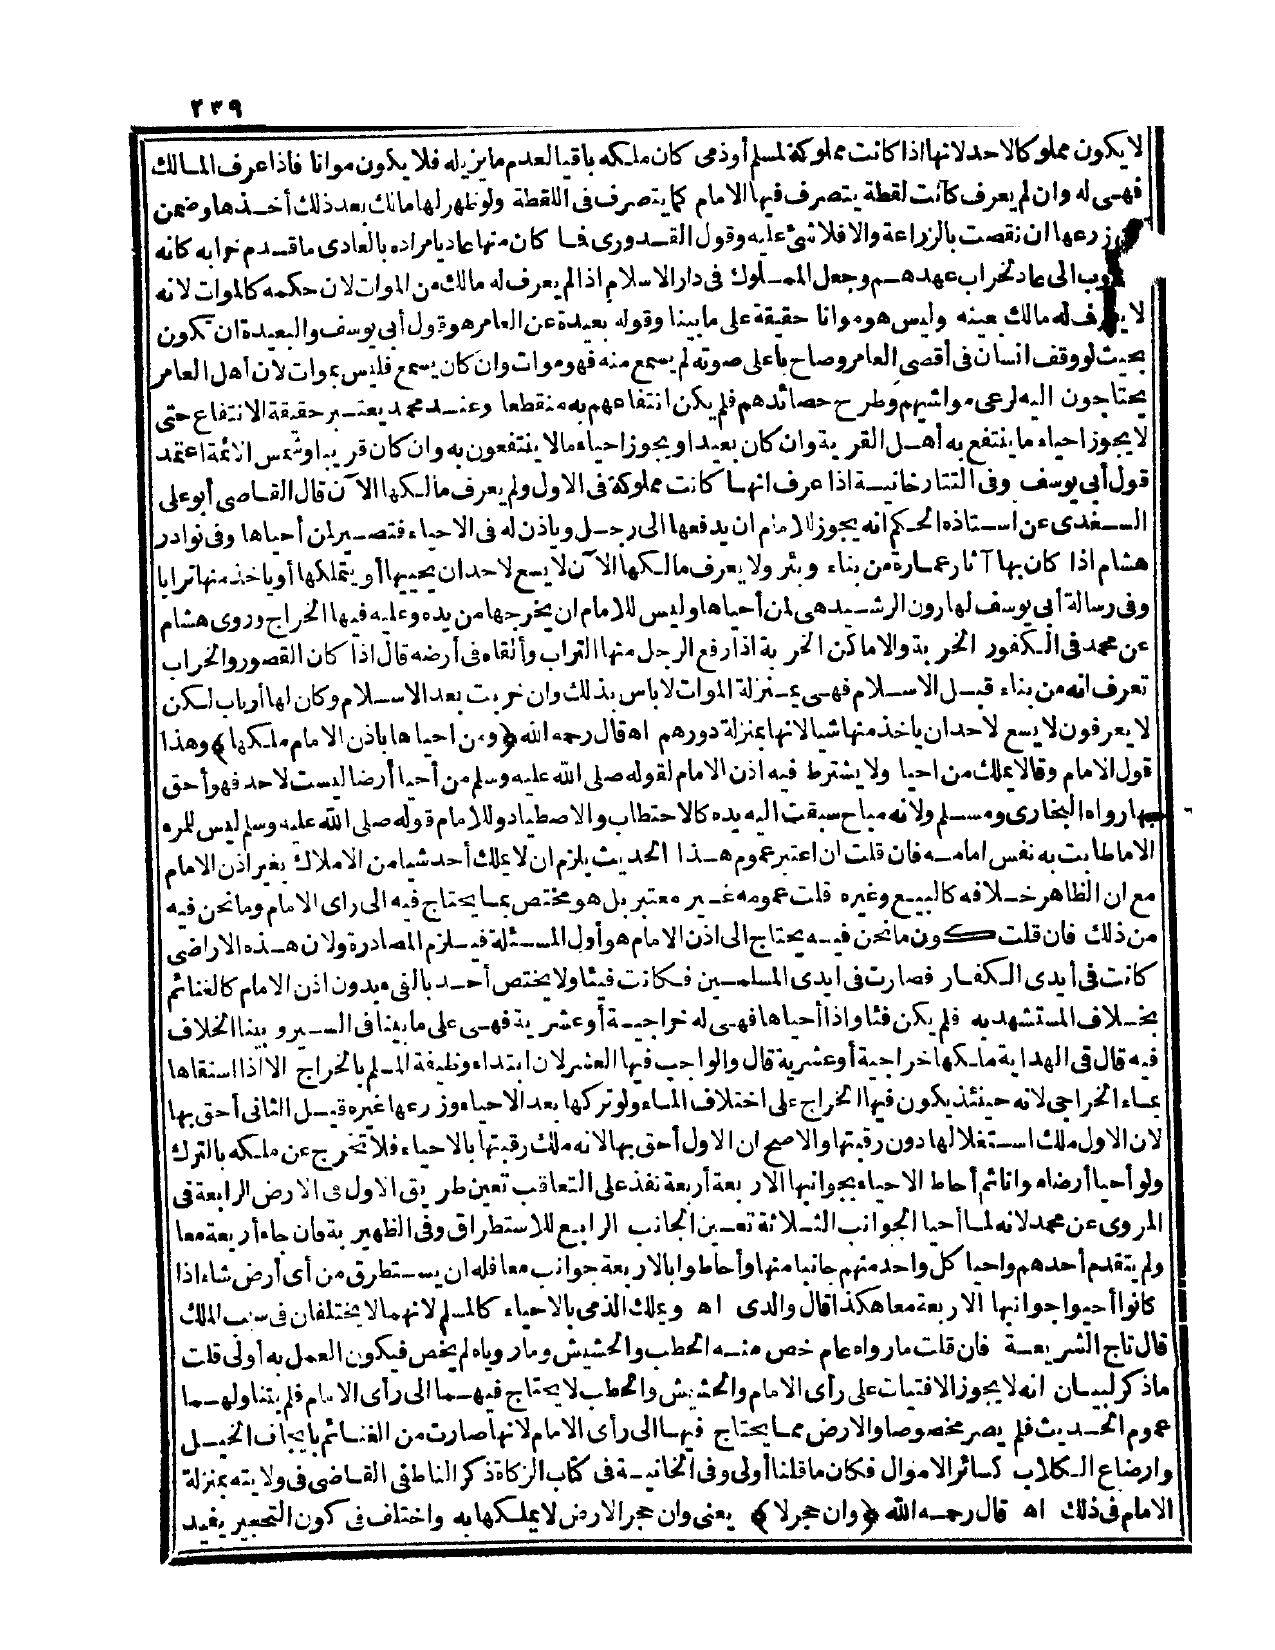 ٢٣٩
لا يكون مملوكا لاحد لانها اذا كانت مملوكة لمسلم أو ذمى كان ملكه باقيا لعدم ما يزيله فلا يكون مواتا فاذا عرف المالك
فهى له وان لم يعرف كانت لقطة يتصرف فيها الامام كما يتصرف فى اللقطة ولو ظهر لها مالك بعد ذلك أخذها وضمن
زرعها ان نقصت بالزراعة والا فلا شئ عليه وقول القدورى فما كان منها عاديا مراده بالعادى ما قدم خرابه كانه
الى عاد لخراب عهدهم وجعل المملوك فى دار الاسلام اذا لم يعرف له مالك من الموات لان حكمه كالموات لانه
لا يعرف له مالك بعينه وليس هو مواتا حقيقة على ما بينا وقوله بعيدة عن العامر هو قول أبى يوسف والبعيدة ان تكون
بحيث لو وقف انسان فى أقصى العامر وصاح باعلى صوته لم يسمع منه فهو موات وان كان يسمع فليس بموات لان أهل العامر
يحتاجون اليه لرعى مواشيهم وطرح حصائدهم فلم يكن انتفاعهم به منقطعا وعند محمد يعتبر حقيقة الانتفاع حتى
لا يجوز احياء ما ينتفع به أهل القرية وان كان بعيدا ويجوز احياء ما لا ينتفعون به وان كان قريبا وشمس الائمة اعتمد
قول أبى يوسف وفى التتارخانية اذا عرف انها كانت مملوكة فى الاول ولم يعرف مالكها الآن قال القاضى أبو على
السغدى عن استاذه الحكم انه يجوز للامام ان يدفعها الى رجل وياذن له فى الاحياء فتصير لمن أحياها وفى نوادر
هشام اذا كان بها آثار عمارة من بناء وبئر ولا يعرف مالكها الآن لا يسع لاحد ان يحييها أو يتملكها أو ياخذ منها ترابا
وفى رسالة أبى يوسف لهارون الرشيد هى لمن أحياها وليس للامام ان يخرجها من يده وعليه فيها الخراج وروى هشام
عن محمد فى الكفور الخربة والاماكن الخربة اذا رفع الرجل منها التراب وألقاه فى أرضه قال اذا كان القصور والخراب
تعرف انه من بناء قبل الاسلام فهى بمنزلة الموات لا باس بذلك وان خربت بعد الاسلام وكان لها أرباب لكن
لا يعرفون لا يسع لاحد ان ياخذ منها شيا لانها بمنزلة دورهم اه قال رحمه الله ﴿ومن احياها باذن الامام ملكها﴾ وهذا
قول الامام وقالا يملك من احيا ولا يشترط فيه اذن الامام لقوله صلى الله عليه وسلم من أحيا أرضا ليست لاحد فهو أحق
بها رواه البخارى ومسلم ولانه مباح سبقت اليه يده كالاحتطاب والاصطياد وللامام قوله صلى الله عليه وسلم ليس للمرء
الا ما طابت به نفس امامه فان قلت ان اعتبر عموم هذا الحديث يلزم ان لا يملك أحد شيا من الاملاك بغير اذن الامام
مع ان الظاهر خلافه كالبيع وغيره قلت عمومه غير معتبر بل هو مختص بما يحتاج فيه الى راى الامام وما نحن فيه
من ذلك فان قلت كون ما نحن فيه يحتاج الى اذن الامام هو أول المسئلة فيلزم المصادرة ولان هذه الاراضى
كانت فى أيدى الكفار فصارت فى ايدى المسلمين فكانت فيئا ولا يختص أحد بالفىء بدون اذن الامام كالغنائم
بخلاف المستشهد به فلم يكن فئا واذا أحياها فهى له خراجية أو عشرية فهى على ما بينا فى السير وبينا الخلاف
فيه قال فى الهداية ملكها خراجية أو عشرية قال والواجب فيها العشر لان ابتداء وظيفة المسلم بالخراج الا اذا استقاها
بماء الخراجى لانه حينئذ يكون فيها الخراج على اختلاف الماء ولو تركها بعد الاحياء وزرعها غيره قيل الثانى أحق بها
لان الاول ملك استغلالها دون رقبتها والاصح ان الاول أحق بها لانه ملك رقبتها بالاحياء فلا تخرج عن ملكه بالترك
ولو أحيا أرضا مواتا ثم أحاط الاحياء بجوانبها الاربعة أربعة نفذ على التعاقب تعين طريق الاول فى الارض الرابعة فى
المروى عن محمد لانه لما أحيا الجوانب الثلاثة تعين الجانب الرابع للاستطراق وفى الظهيرية فان جاء أربعة معا
ولم يتقدم أحدهم واحيا كل واحد منهم جانبا منها وأحاطوا بالاربعة جوانب معا فله ان يستطرق من أى أرض شاء اذا
كانوا أحيوا جوانبها الاربعة معا هكذا قال والدى اه ويملك الذمى بالاحياء كالمسلم لانهما لا يختلفان فى سبب الملك
قال تاج الشريعة فان قلت ما رواه عام خص منه الحطب والحشيش وما روياه لم يخص فيكون العمل به أولى قلت
ما ذكر لبيان انه لا يجوز الافتيات على رأى الامام والحشيش والحطب لا يحتاج فيهما الى رأى الامام فلم يتناولهما
عموم الحديث فلم يصر مخصوصا والارض مما يحتاج فيها الى رأى الامام لانها صارت من الغنائم بايجاف الخيل
وارضاع الكلاب كسائر الاموال فكان ما قلنا أولى وفى الخانية فى كتاب الزكاة ذكر الناطفى القاضى فى ولايته بمنزلة
الامام فى ذلك اه قال رحمه الله ﴿وان حجر لا﴾ يعنى وان حجر الارض لا يملكها به واختلف فى كون التحجير يفيد